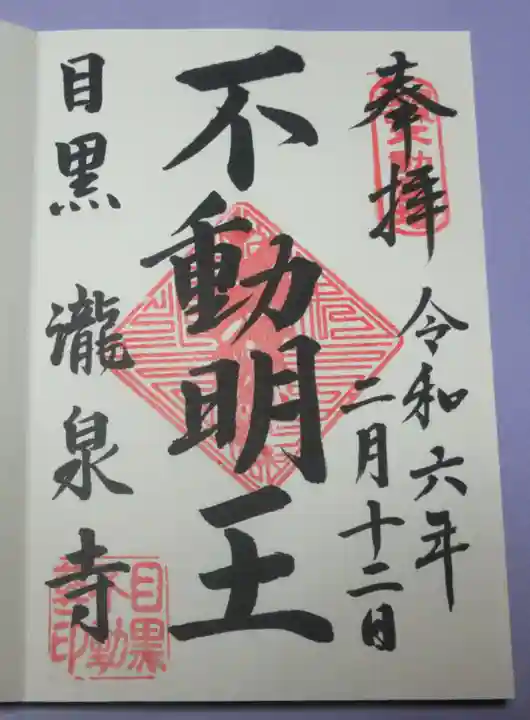 奉拝
令和六年
二月十二日
不動明王
目黒 瀧泉寺
目黒
不動